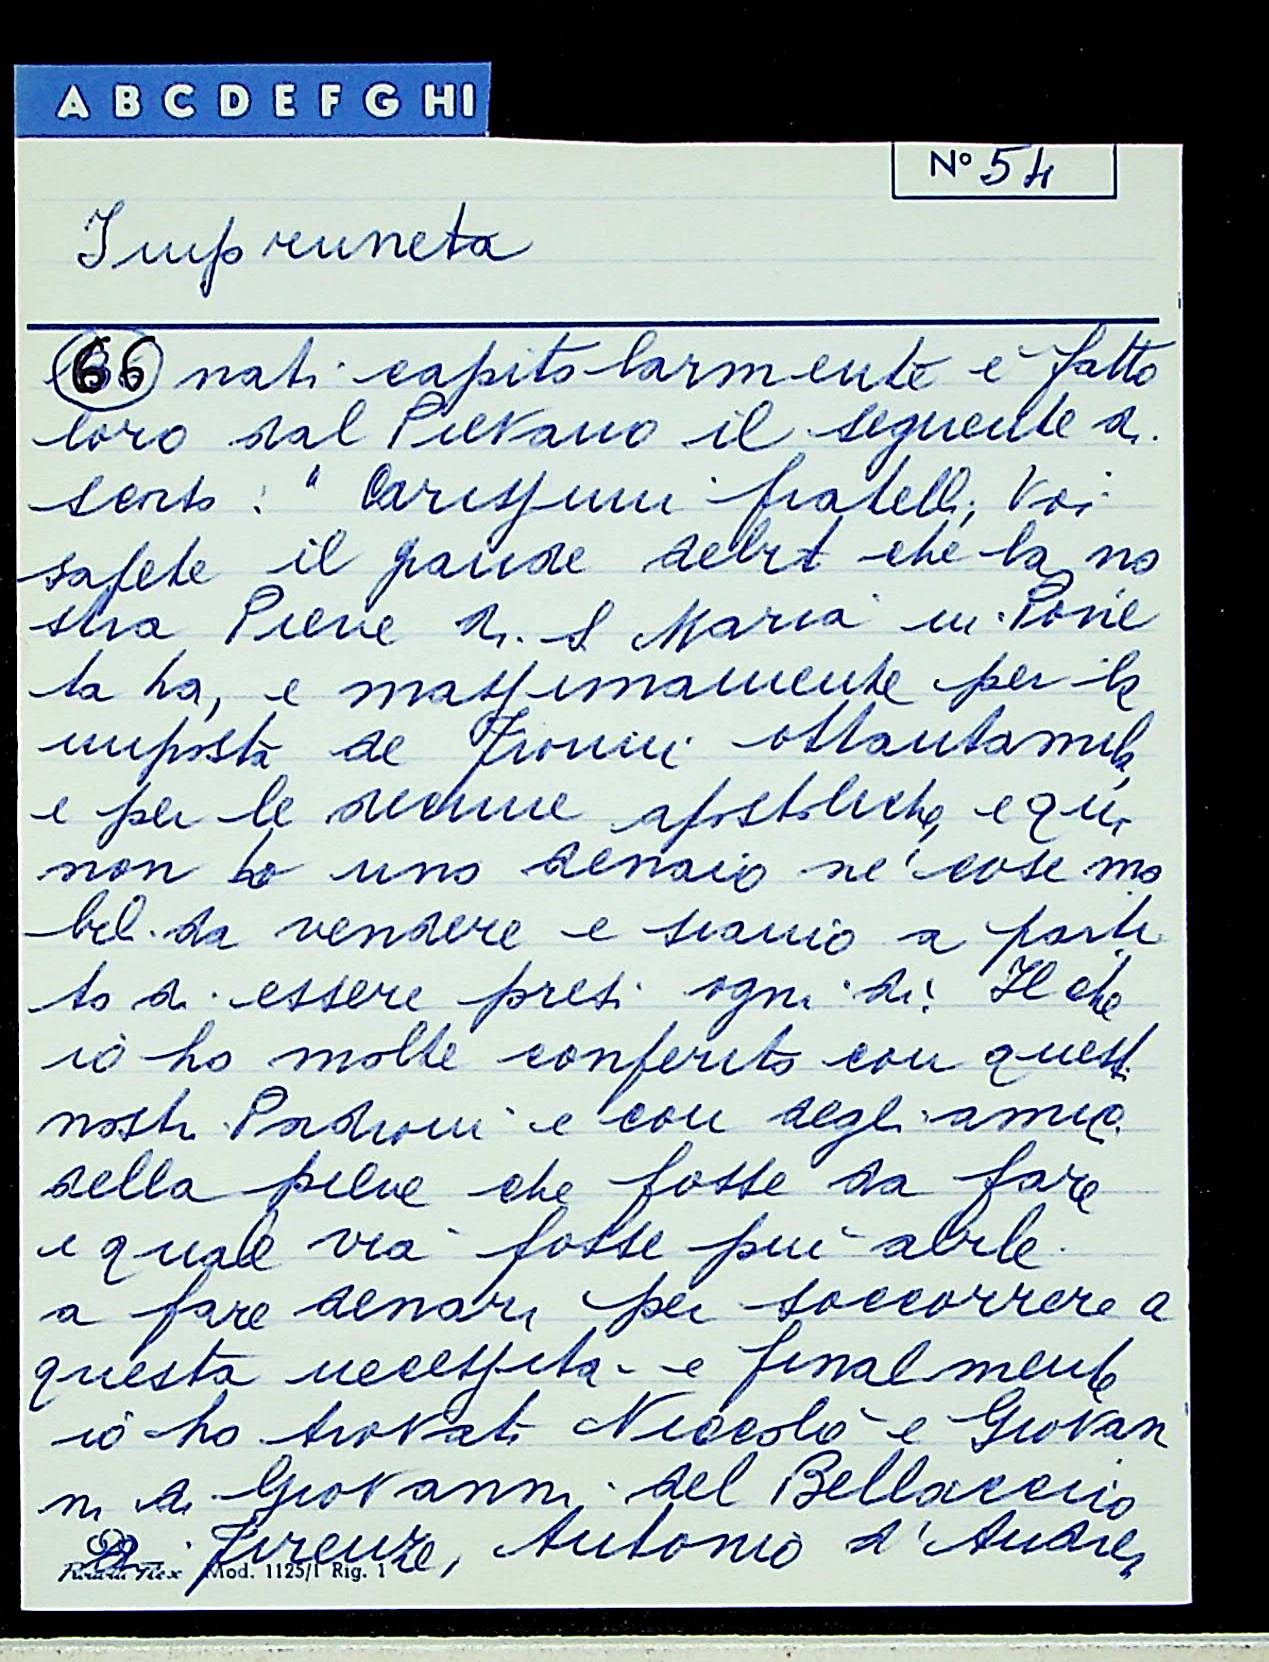 A B C D E F G HI
N° 54
Impruneta
66 nati capitolarmente è fatto
loro dal Pievano il seguente di
scorso: " Carissimi fratelli, Voi
sapete il grande debit che la no
stra Pieve di S Maria in Pane
ta ha, e massimamente per la
imposta de Fiorini ottantamila,
e per le decime apostoliche, e qui
non ho uno denaio né cose mo
bili da vendere e siamo a parti
to di essere presi ogni dì: Il che
iò ho molte conferito con questi
nostri Padroni e con degli amici
della pieve che fosse da fare
e quale via fosse più abile
a fare denari per soccorrere a
questa necessità e finalmente
iò ho trovati Niccolò e Giovan
ni di Giovanni del Bellaccio
di Firenze, Antonio d'Andrea
Mod. 1125/1 Rig. 1